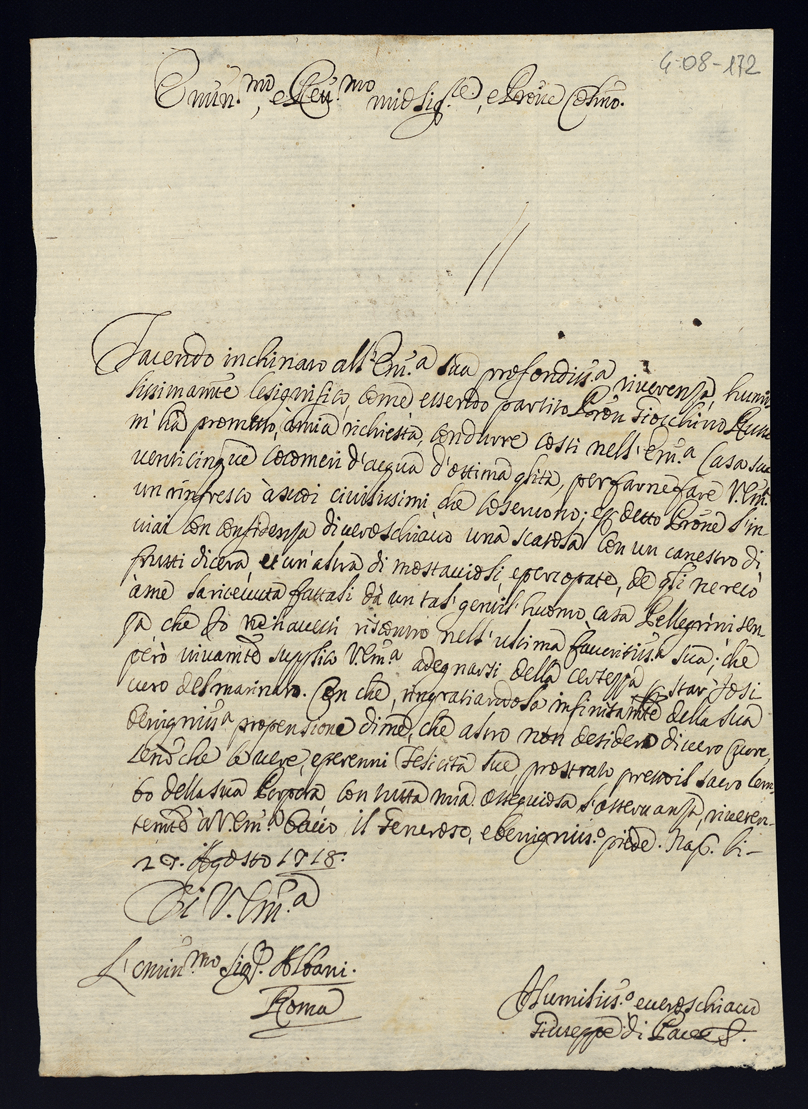 4-08-172
Emin.mo, e Reu.mo mio Sig.re, e Prone Colmo.
Facendo inchinato all'Em.a Sua profondiss.a riverenza, humi
lissimamte le significo, come essendo partito Pron Gioachino
mi hà promesso, à mia richiesta, condurre costì nell'Em.a Casa sua
venticinque cocomeri d'acqua d'ottima qlità, per farne fare V. Em.a
un rinfresco à suoi civilissimi che la servono; e detto Prone l'in
viai con confidenza di vero schiavo una scatola con un canestro di
frutti di cera, et un'altra di mostaccioli, e percopate, de qli ne recò
à me la ricevuta fattali dà un tal gentil'huomo, casa Pellegrini sen
za che Io ne havessi riscontro nell'ultima favoritiss.a sua; che
però vivamte supplico V. Em.a a degnarsi della certezza, p star Io si
curo del marinaro. Con che, ringratiandola infinitamte della sua
benigniss.a propensione di me, che altro non desidero di vero cuore,
senò che le vere, e perenni felicità sue, prostrato presso il sacro lem-
bo della sua Porpora con tutta mia ossequiosa osservanza, riveren-
temte à V. Em.a bacio il generoso, e benigniss.o piede. Nap. li-
27. Agosto 1718.
Di V. Em.a
L'Emin.mo Sig.r Albani.
Roma
Humiliss.o e vero schiavo
Giuseppe di Pace